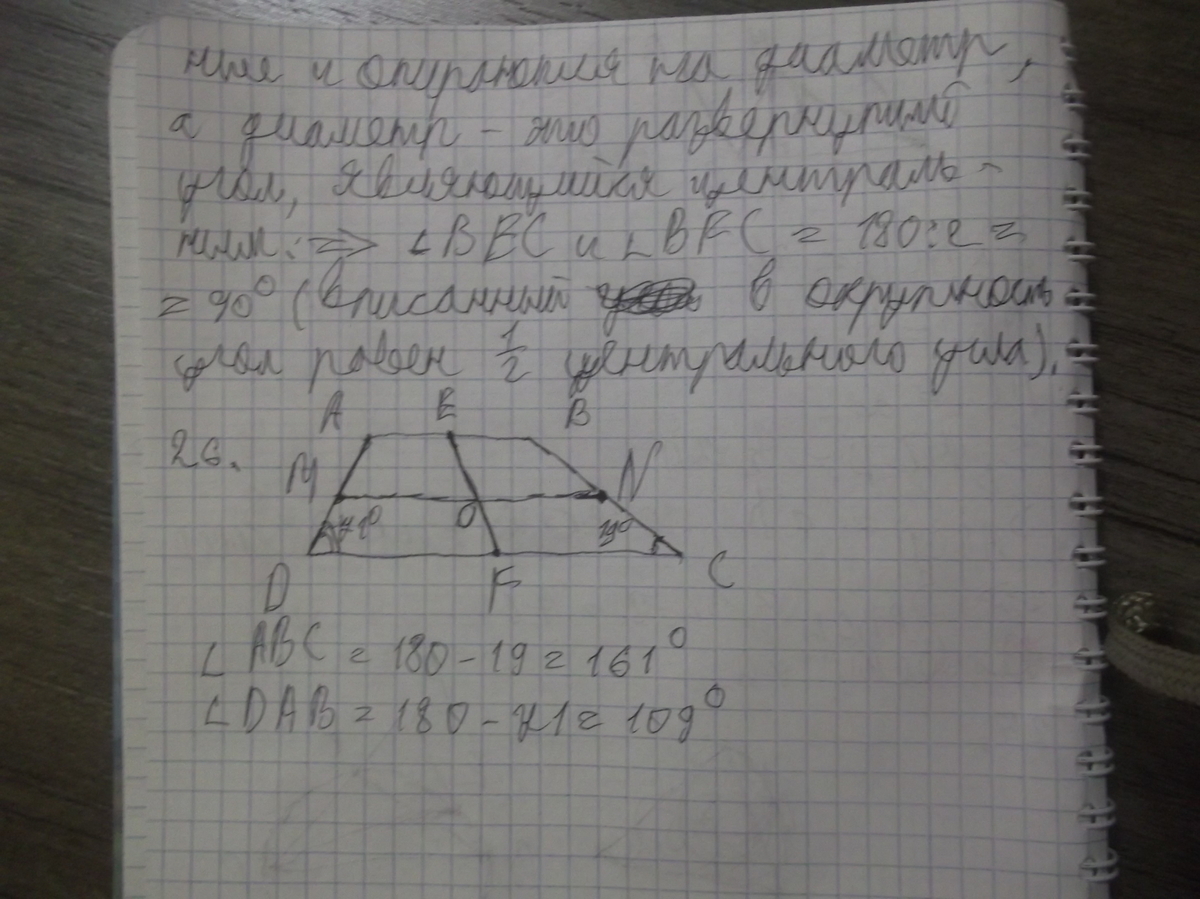 ние и опираются на диаметр,
а диаметр - это развернутый
угол, являющийся централь-
ным. => ∠BEC и ∠BFC = 180:2 =
= 90° (вписанный в окружность
угол равен 1/2 центрального угла).
A E B
26.
M N
71° O 19°
D F C
∠ABC = 180 - 19 = 161°
∠DAB = 180 - 71 = 109°